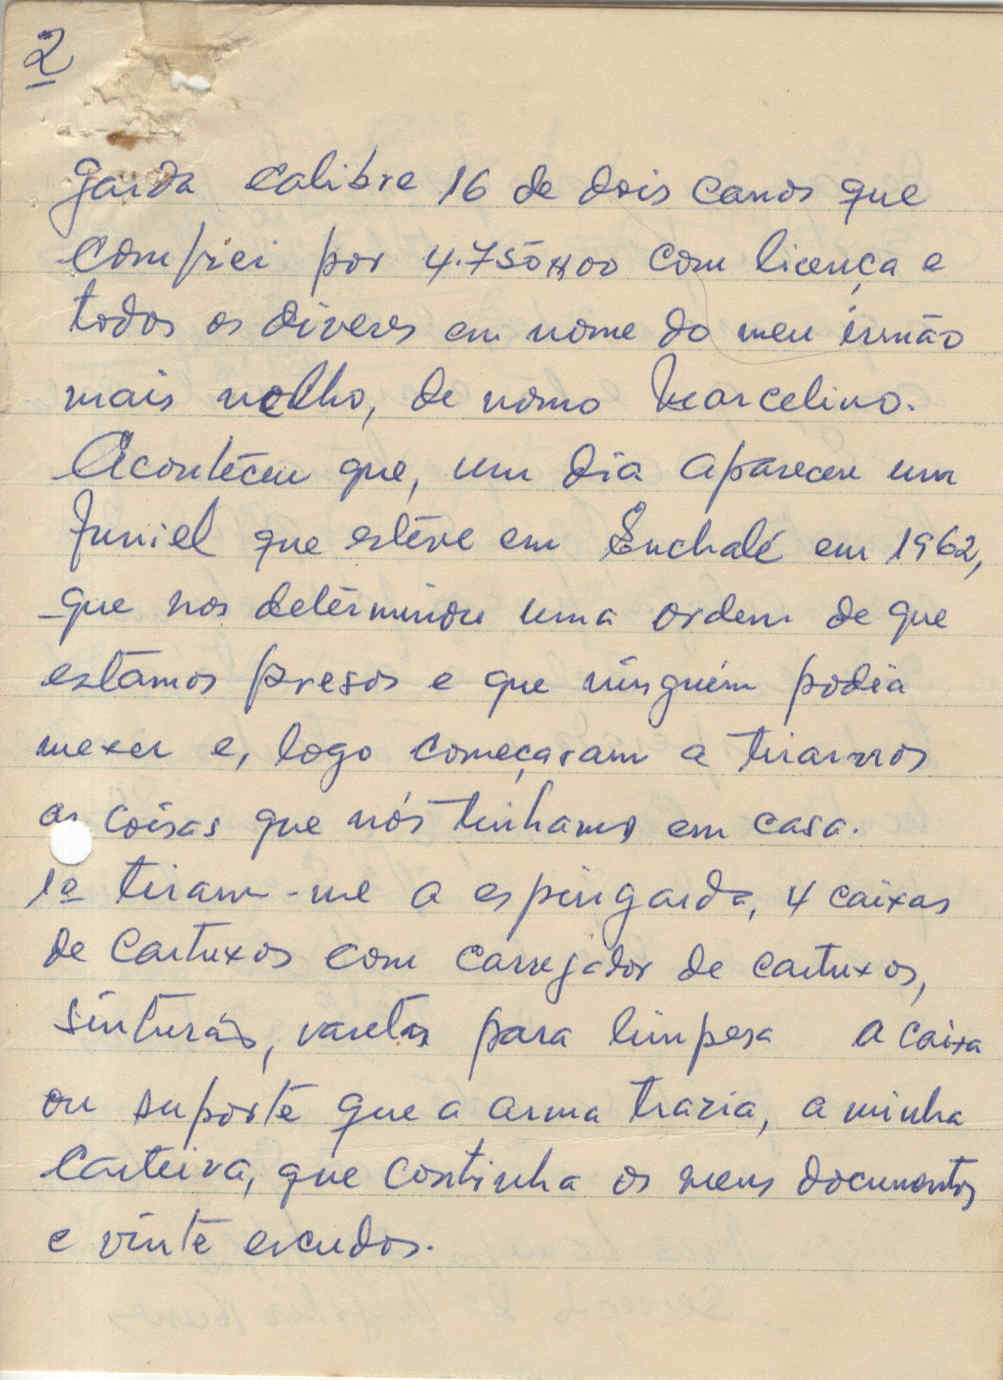 2
garda calibre 16 de dois canos que
comprei por 4.750$00 com licença e
todos os diveres em nome do meu irmão
mais velho, de nome Marcelino.
Acontéceu que, um dia apareceu um
que estéve em Enchalé em 1962,
que nos detérminou uma ordem de que
estamos presos e que ninguém podia
mexer e, logo começaram a tirarnos
as coisas que nós tinhamos em casa.
1º tiram-me a espingarda, 4 caixas
de cartuxos com carregador de cartuxos,
sinturas, varetas para limpesa a caixa
ou suporte que a arma trazia, a minha
carteira, que continha os meus documentos
e vinte escudos.